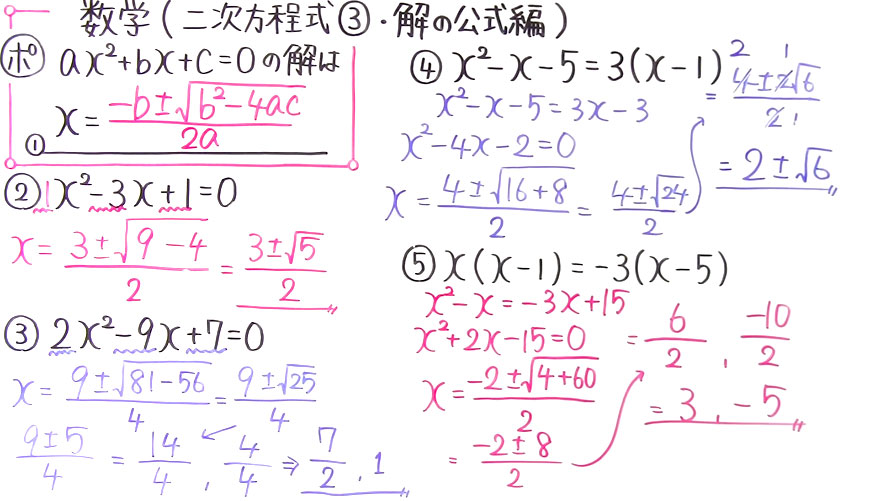 数学(二次方程式③・解の公式編)
ポ ax²+bx+c=0の解は
① x = (-b±√(b²-4ac))/(2a)
② 1x²-3x+1=0
x = (3±√(9-4))/2 = (3±√5)/2
③ 2x²-9x+7=0
x = (9±√(81-56))/4 = (9±√25)/4
(9±5)/4 = 14/4 , 4/4 ⇒ 7/2 , 1
④ x²-x-5=3(x-1)
x²-x-5=3x-3
x²-4x-2=0
x = (4±√(16+8))/2 = (4±√24)/2
2 1
= (4±2√6)/2 1
= 2±√6
⑤ x(x-1)=-3(x-5)
x²-x=-3x+15
x²+2x-15=0
x = (-2±√(4+60))/2
= (-2±8)/2
= 6/2 , -10/2
= 3 , -5